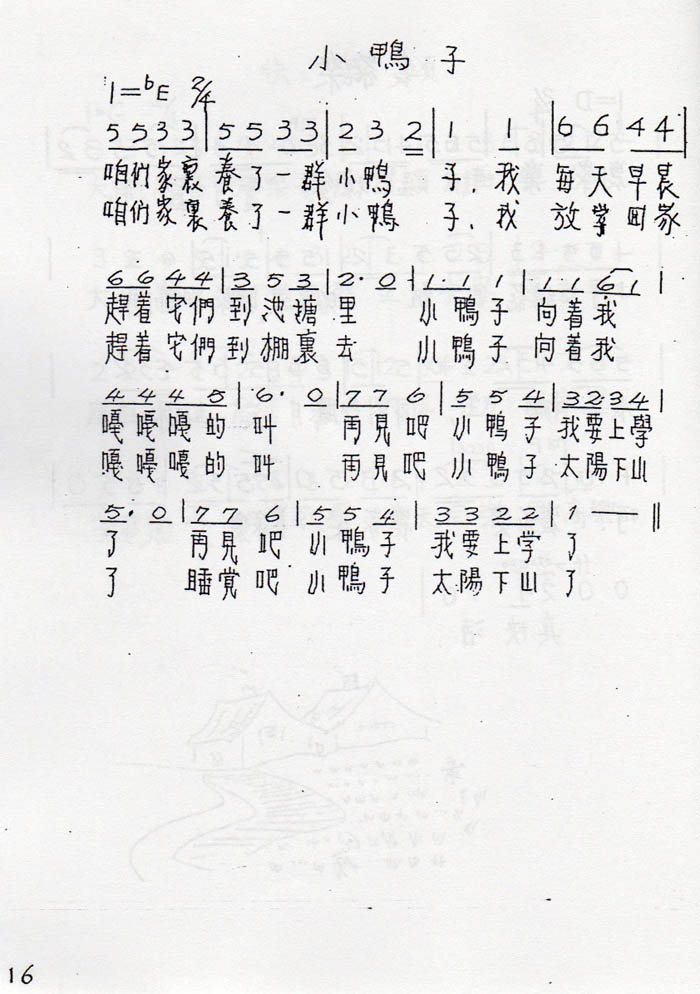 小鴨子
1=bE 2/4
5 5 3 3 | 5 5 3 3 | 2 3 2 | 1 1 | 6 6 4 4 |
咱們家裏養了一群小鴨子.我每天早晨
咱们家裏養了一群小鴨子.我放学回家
6 6 4 4 | 3 5 3 | 2· 0 | 1 1 1 | 1 1 6 1 |
趕着它們到池塘里 小鴨子向着我
趕着它們到棚裏去 小鴨子向着我
4 4 4 5 | 6· 0 | 7 7 6 | 5 5 4 | 3 2 3 4 |
嘎嘎嘎的叫 再見吧小鴨子我要上學
嘎嘎嘎的叫 再見吧小鴨子太陽下山
5· 0 | 7 7 6 | 5 5 4 | 3 3 2 2 | 1 — ||
了 再見吧小鴨子我要上学了
了 睡觉吧小鴨子太陽下山了
16